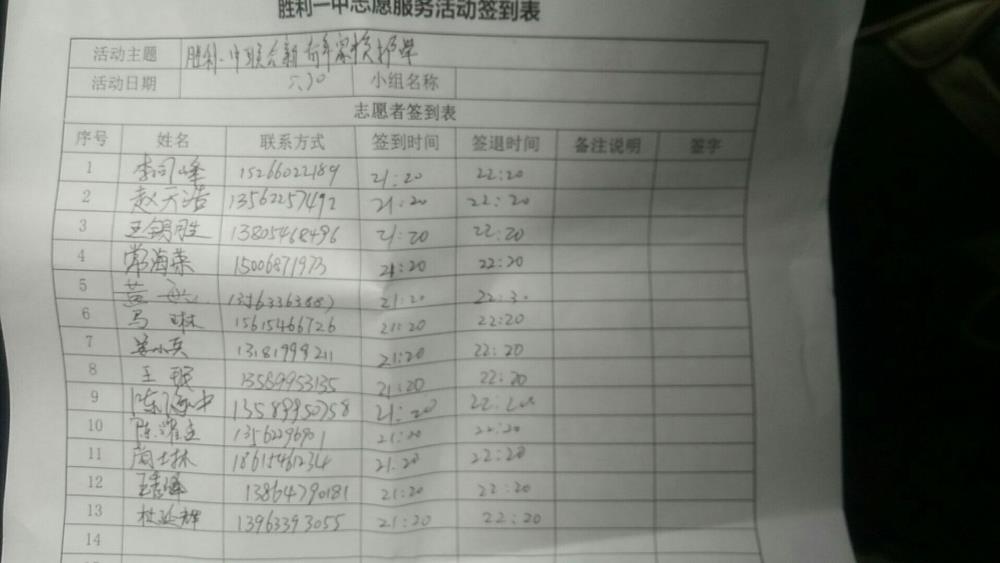 胜利一中志愿服务活动签到表
活动主题 胜利一中联合新 家校护学
活动日期 六.30 小组名称
志愿者签到表
序号 姓名 联系方式 签到时间 签退时间 备注说明 签字
1 李同峰 15266022189 21:20 22:20
2 赵天浩 13562257492 21:20 22:20
3 王锡胜 13805468496 21:20 22:20
4 常海荣 15006871973 21:20 22:20
5 黄 21:20 22:30
6 马琳 15615466726 21:20 22:20
7 姜小英 13181998211 21:20 22:20
8 王珉 13589953135 21:20 22:20
9 陈 中 13589950758 21:20 22:20
10 陈 21:20 22:20
11 林 18615461234 21:20 22:20
12 王 峰 13864790181 21:20 22:20
13 杜延辉 13963393055 21:20 22:20
14